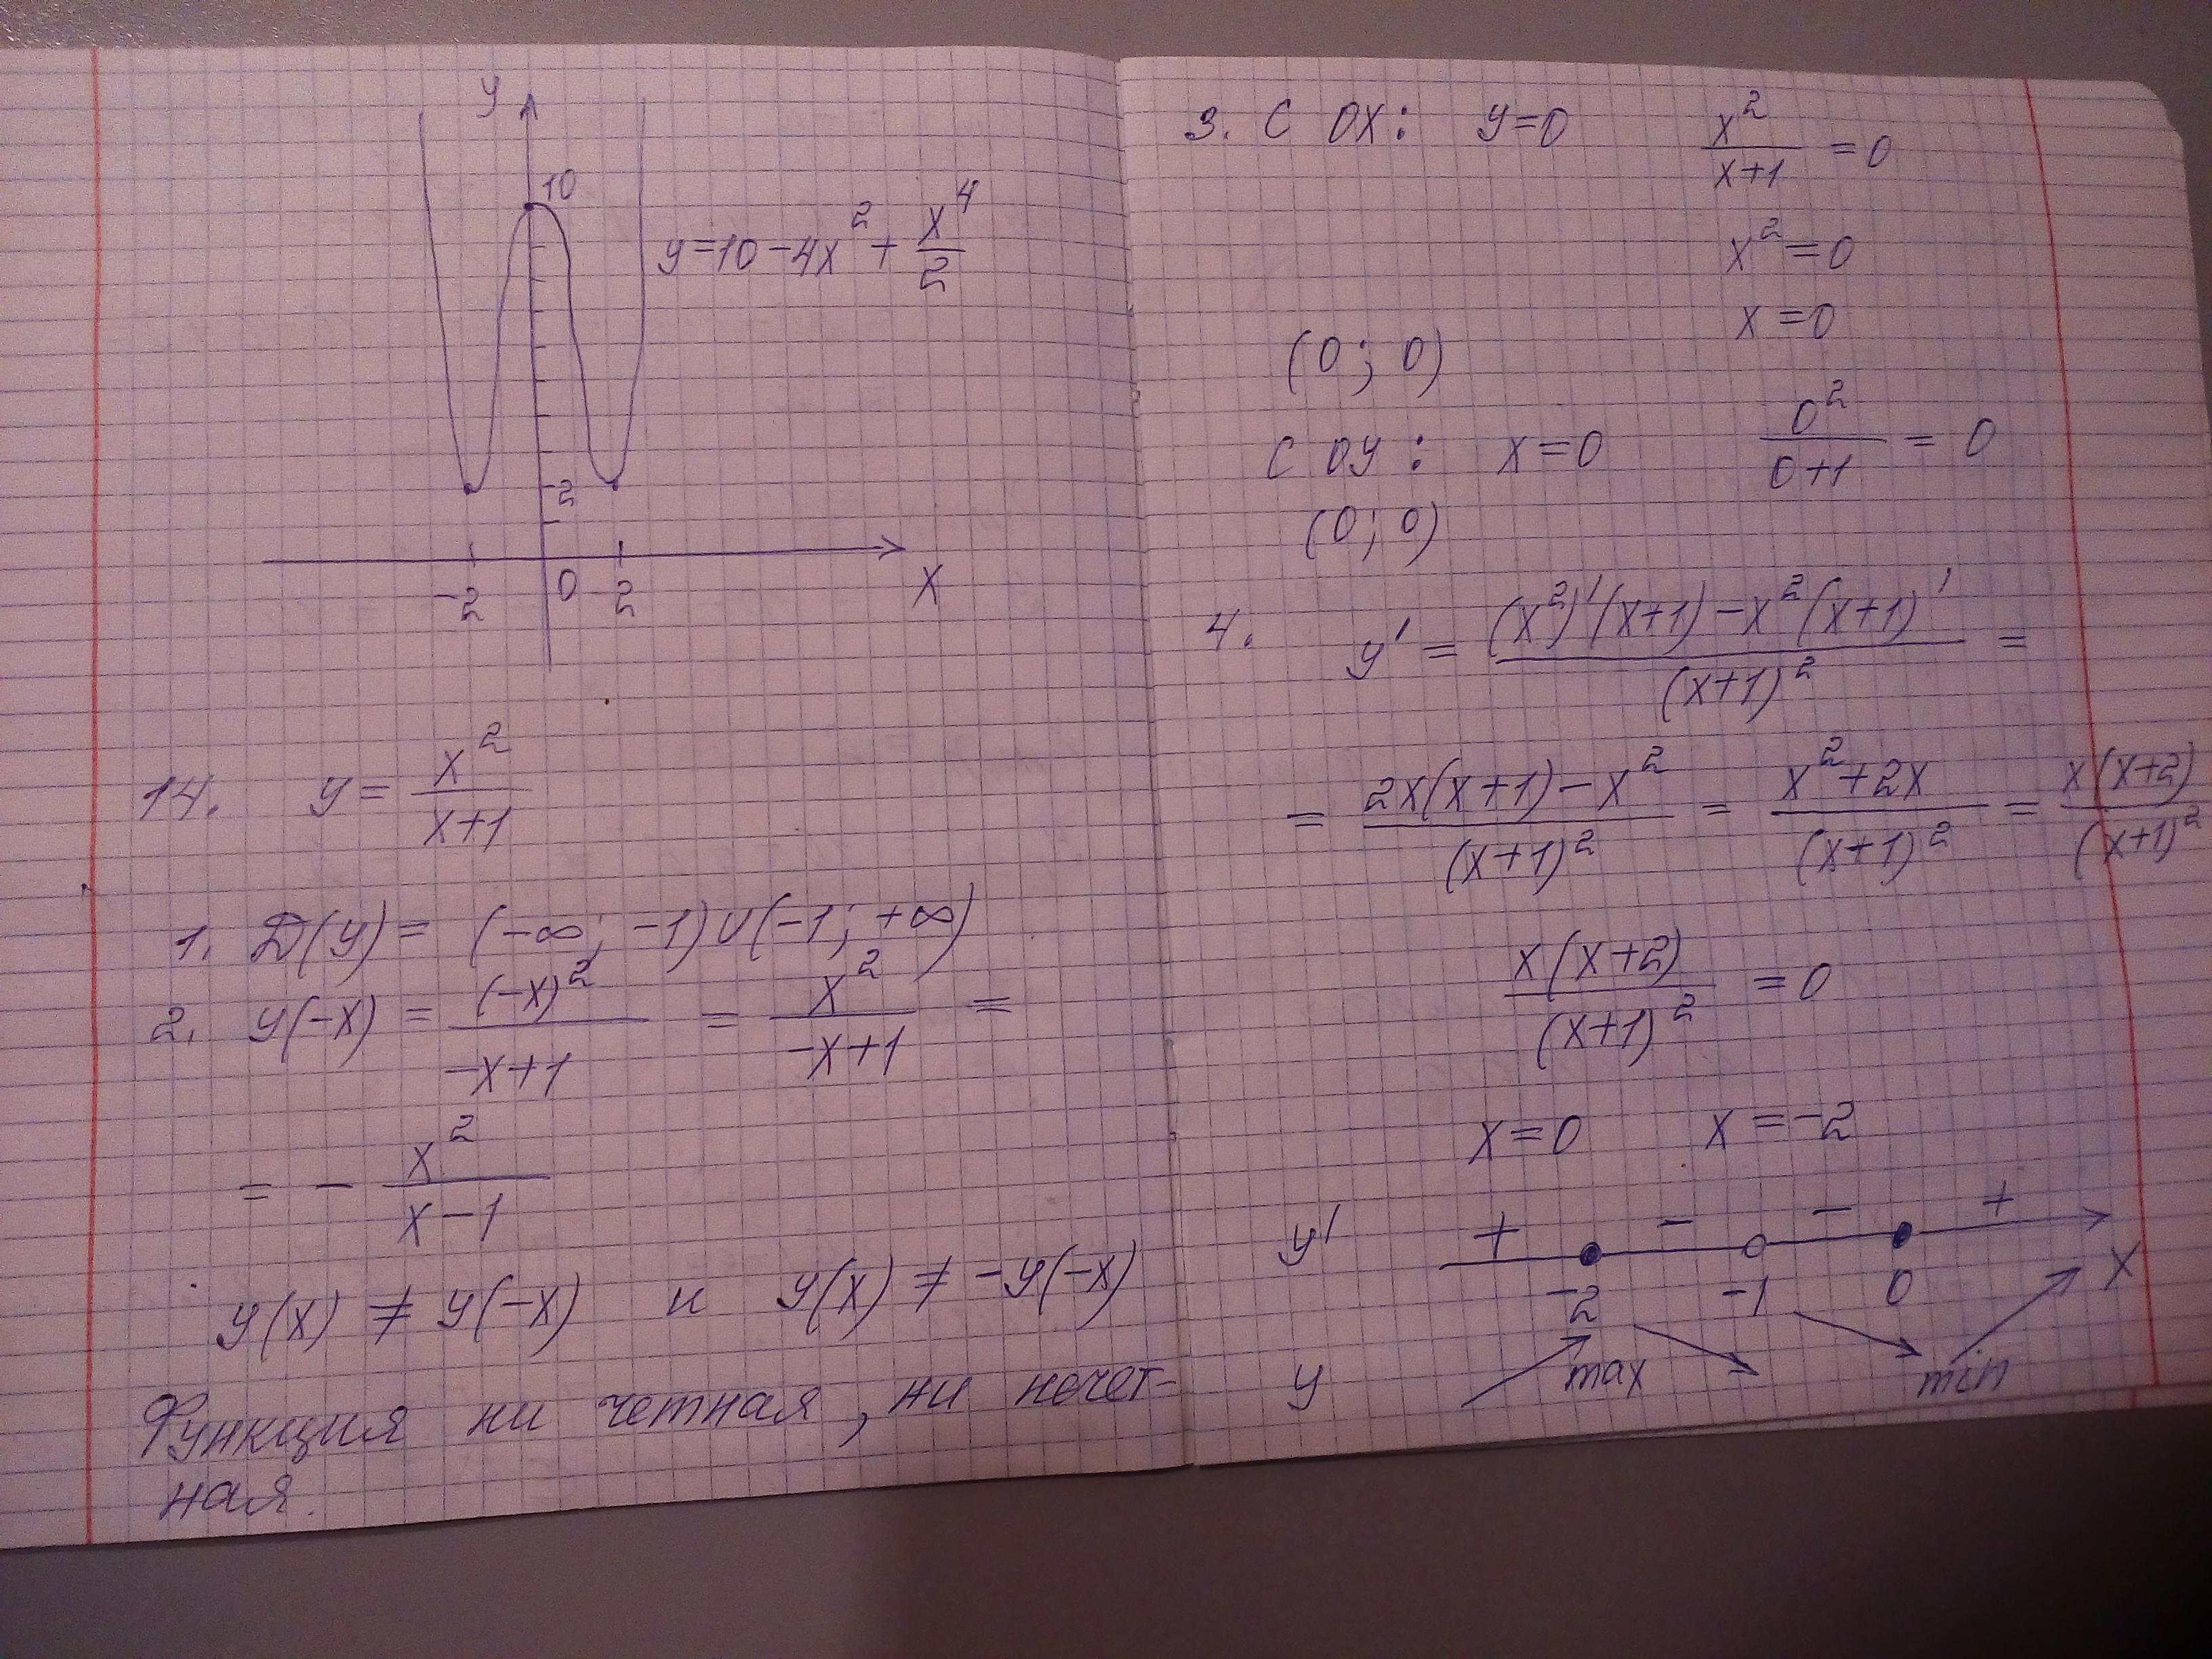 y
10
y=10-4x²+x⁴/2
2
-2 0 2 x
14. y = x²/(x+1)
1. D(y) = (-∞; -1)∪(-1; +∞)
2. y(-x) = (-x)²/(-x+1) = x²/(-x+1) =
= - x²/(x-1)
y(x) ≠ y(-x) и y(x) ≠ -y(-x)
Функция ни четная, ни нечет-
ная.
3. С OX: y=0 x²/(x+1) = 0
x² = 0
x = 0
(0; 0)
С OY: x=0 0²/(0+1) = 0
(0; 0)
4. y' = ((x²)'(x+1)-x²(x+1)')/(x+1)² =
= (2x(x+1)-x²)/(x+1)² = (x²+2x)/(x+1)² = x(x+2)/(x+1)²
x(x+2)/(x+1)² = 0
x=0 x=-2
y' + - - +
-2 -1 0 x
y max min